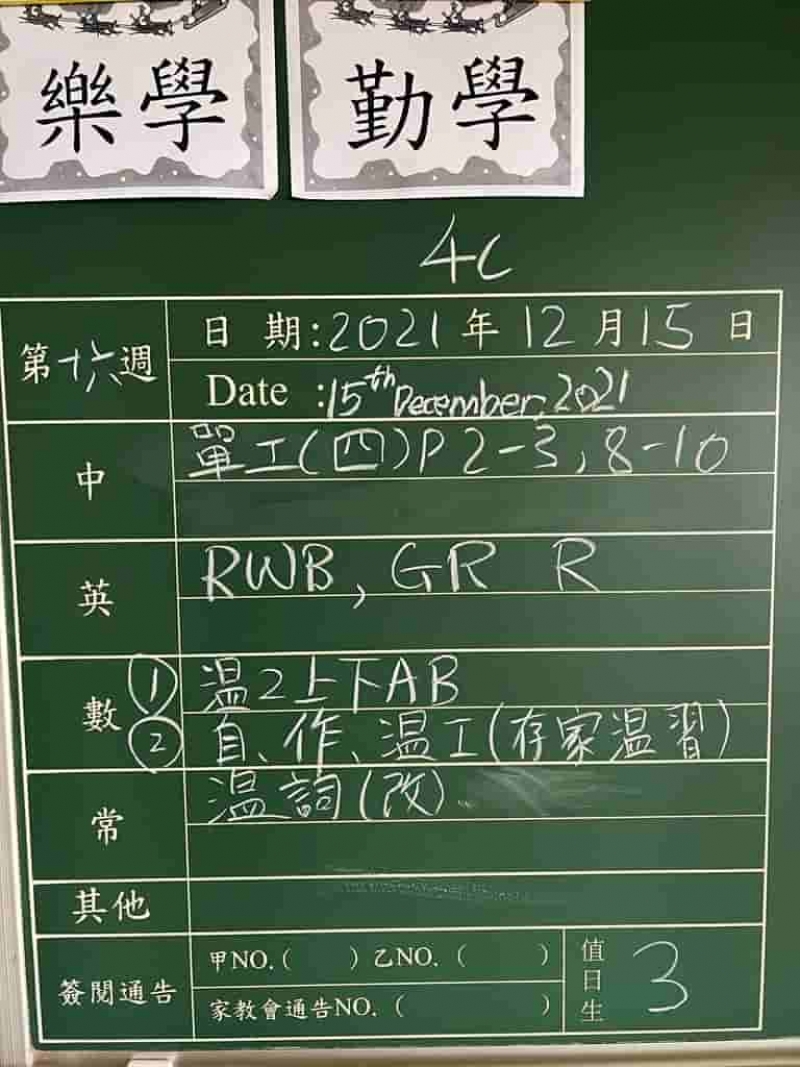 樂學 勤學
4C
第十六週 日期:2021年12月15日
Date :15th December, 2021
中 單工(四)P 2-3,8-10
英 RWB, GR R
數 ① 温2上下AB
② 自、作、温工(存家温習)
常 温詞(改)
其他
簽閱通告 甲NO.( ) 乙NO.( )
家教會通告NO.( )
值日生 3